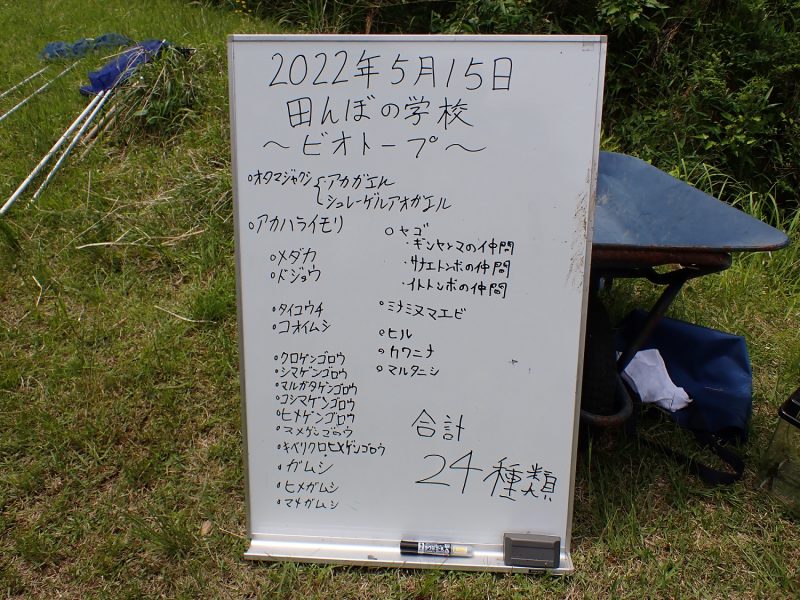 2022年5月15日
田んぼの学校
～ビオトープ～
○オタマジャクシ アカガエル
シュレーゲルアオガエル
○アカハライモリ
○メダカ
○ドジョウ
○タイコウチ
○コオイムシ
○クロゲンゴロウ
○シマゲンゴロウ
○マルガタゲンゴロウ
○コシマゲンゴロウ
○ヒメゲンゴロウ
○マメゲンゴロウ
○キベリクロヒメゲンゴロウ
○ガムシ
○ヒメガムシ
○マメガムシ
○ヤゴ
・ギンヤンマの仲間
・サナエトンボの仲間
・イトトンボの仲間
○ミナミヌマエビ
○ヒル
○カワニナ
○マルタニシ
合計
24種類